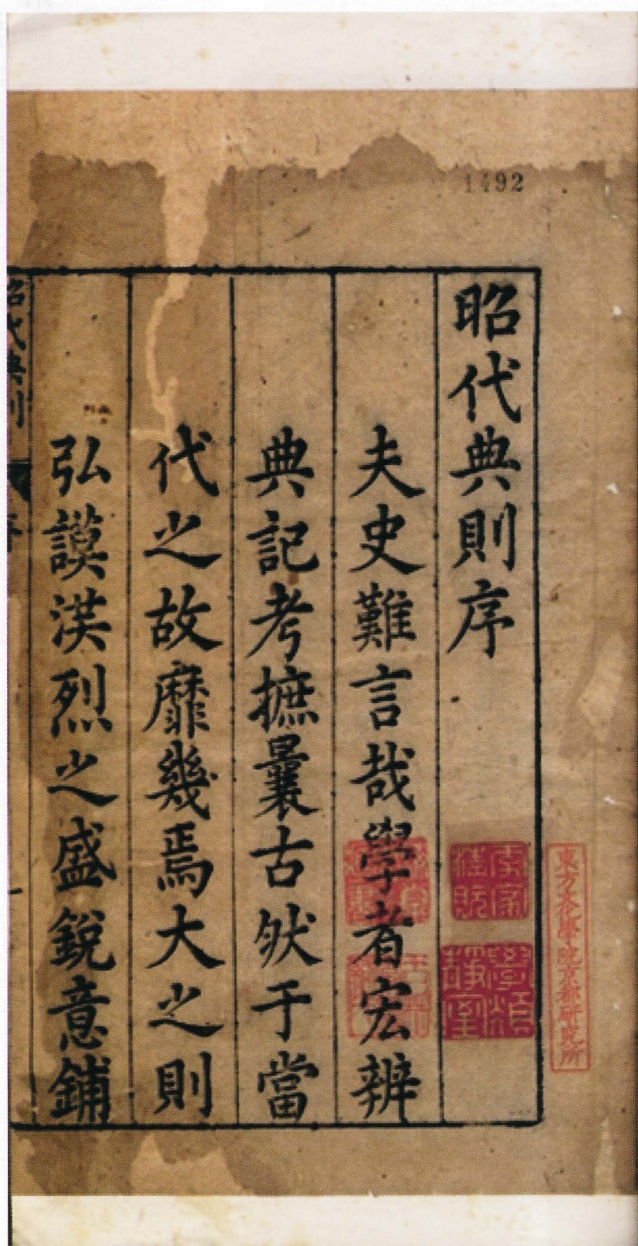 1492
昭代典則序
夫史難言哉學者宏辨
典記考摭曩古然于當
代之故靡幾焉大之則
弘謨渶烈之盛銳意鋪
昭代典則
序
一
東方文化學院京都研究所